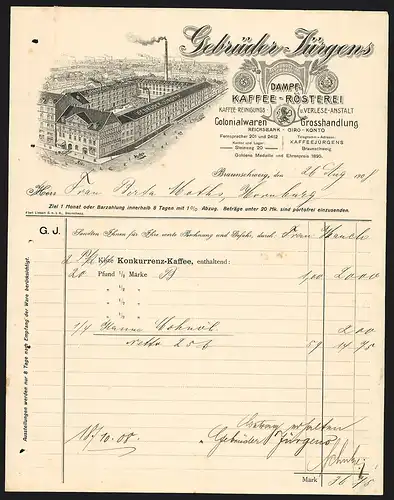 Gebrüder Jürgens
DAMPF-
KAFFEE-RÖSTEREI
KAFFEE REINIGUNGS u. VERLESE-ANSTALT
Colonialwaren Grosshandlung
REICHSBANK-GIRO-KONTO
Fernsprecher 201 und 2412
Telegramm-Adresse:
Kontor und Lager:
KAFFEEJÜRGENS
Steinweg 20
Braunschweig
Goldene Medaille und Ehrenpreis 1890.
Braunschweig, den 26 Aug 1908
Frau
Ziel 1 Monat oder Barzahlung innerhalb 8 Tagen mit 1% Abzug. Beträge unter 20 Mk. sind portofrei einzusenden.
G. J.
Sandten Ihnen für Ihre werte Rechnung und Gefahr, durch: Frau
Konkurrenz-Kaffee, enthaltend:
20 Pfund 1/1 Marke B 1,00 20,00
" 1/2 "
" 1/4 "
" 1/8 "
1/4 Kanne Mohnöl 2,00
Netto 25 59 14 75
Betrag erhalten
18/10.08. Gebrüder Jürgens
Mark 36 75
Ausstellungen werden nur 8 Tage nach Empfang der Ware berücksichtigt.